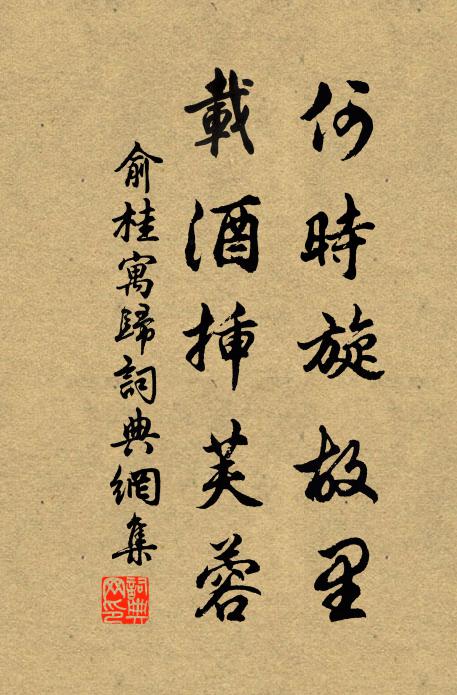 何時旋故里
載酒插芙蓉
俞桂寓歸詞典網集
詞典網印